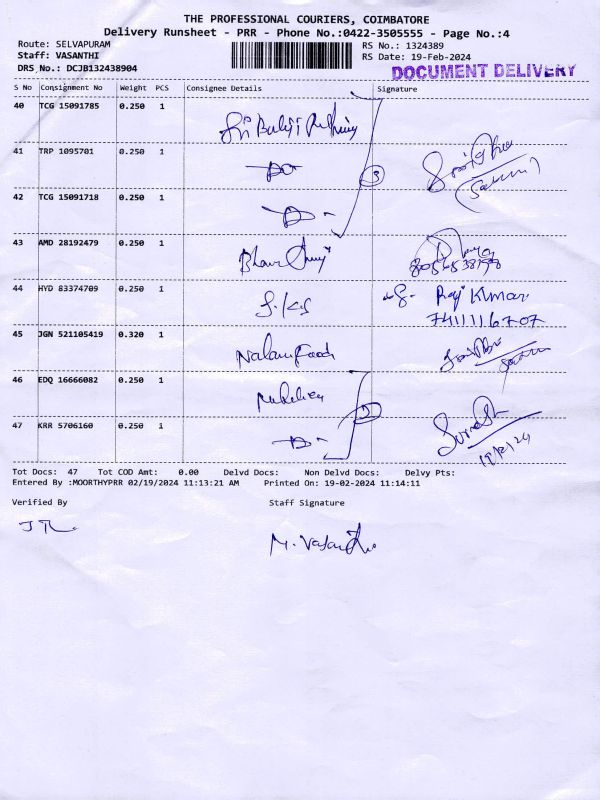 THE PROFESSIONAL COURIERS, COIMBATORE
Delivery Runsheet - PRR - Phone No.:0422-3505555 - Page No.:4
Route: SELVAPURAM RS No.: 1324389
Staff: VASANTHI RS Date: 19-Feb-2024
DRS No.: DCJB132438904 DOCUMENT DELIVERY
S No Consignment No Weight PCS Consignee Details Signature
40 TCG 15091785 0.250 1
41 TRP 1095701 0.250 1
42 TCG 15091718 0.250 1
3
43 AMD 28192479 0.250 1
44 HYD 83374709 0.250 1 Raj Kumar
7411116707
45 JGN 521105419 0.320 1 Nalam Foods
46 EDQ 16666082 0.250 1
2
47 KRR 5706160 0.250 1 Suresh
Tot Docs: 47 Tot COD Amt: 0.00 Delvd Docs: Non Delvd Docs: Delvy Pts:
Entered By :MOORTHYPRR 02/19/2024 11:13:21 AM Printed On: 19-02-2024 11:14:11
Verified By Staff Signature
M. Vasanthi